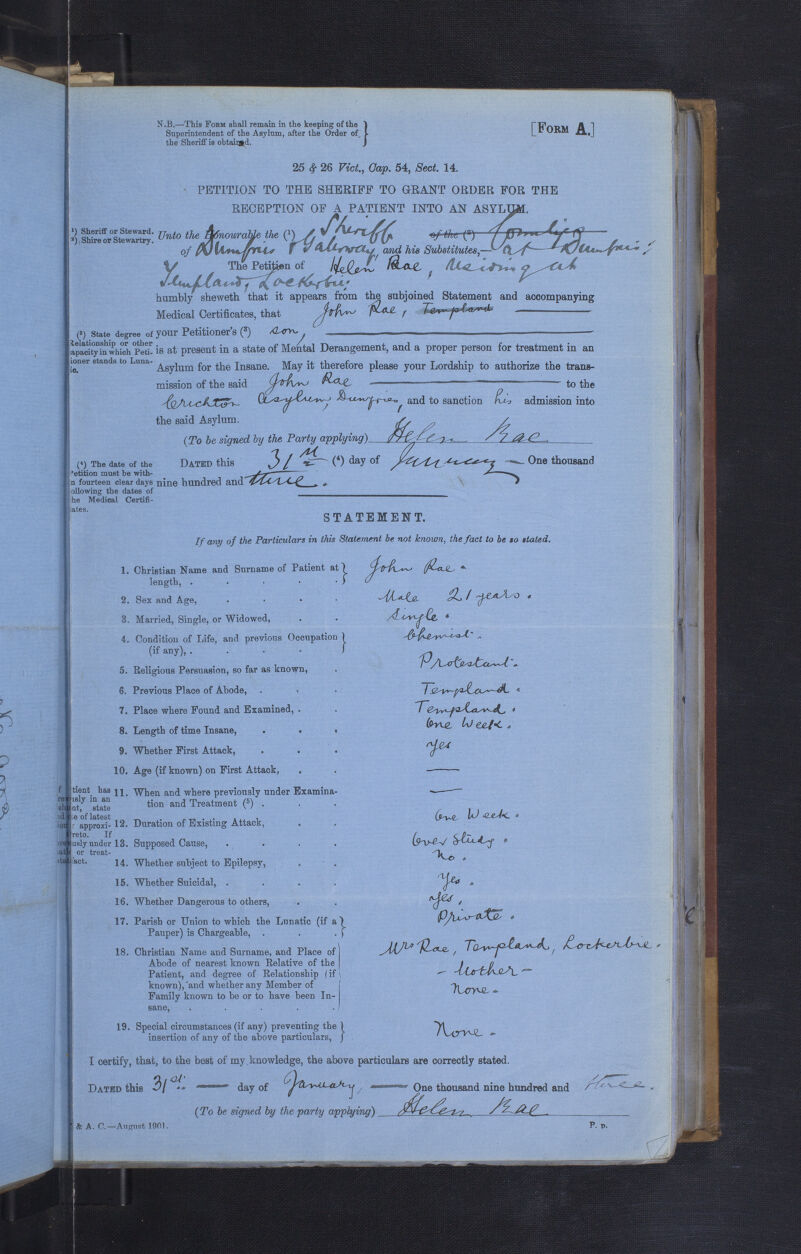 N.B.—This Form shall remain in the keeping of the
Superintendent of the Asylum, after the Order of
the Sheriff is obtained.
[Form A.]
25 & 26 Vict., Cap. 54, Sect. 14.
PETITION TO THE SHERIFF TO GRANT ORDER FOR THE
RECEPTION OF A PATIENT INTO AN ASYLUM.
¹) Sheriff or Steward.
²) Shire or Stewartry.
Unto the Honourable the (¹) Sheriff of the (²) Counties
of Dumfries & Galloway, and his Substitutes,— at Dumfries:
The Petition of Helen Rae, residing at
Templand, Lockerbie,
humbly sheweth that it appears from the subjoined Statement and accompanying
Medical Certificates, that John Rae, Templand
(³) State degree of
Relationship or other
apacity in which Peti-
ioner stands to Luna-
ic.
your Petitioner's (³) son,
is at present in a state of Mental Derangement, and a proper person for treatment in an
Asylum for the Insane. May it therefore please your Lordship to authorize the trans-
mission of the said John Rae to the
Crichton Asylum, Dumfries, and to sanction his admission into
the said Asylum.
(To be signed by the Party applying) Helen Rae
(⁴) The date of the
Petition must be with-
n fourteen clear days
ollowing the dates of
he Medical Certifi-
ates.
Dated this 31st (⁴) day of January — One thousand
nine hundred and three.
STATEMENT.
If any of the Particulars in this Statement be not known, the fact to be so stated.
1. Christian Name and Surname of Patient at
length, . John Rae.
2. Sex and Age, Male 21 years.
3. Married, Single, or Widowed, Single.
4. Condition of Life, and previous Occupation
(if any), . Chemist.
5. Religious Persuasion, so far as known, Protestant.
6. Previous Place of Abode, . Templand.
7. Place where Found and Examined, . Templand.
8. Length of time Insane, One Week.
9. Whether First Attack, Yes
10. Age (if known) on First Attack, —
tient has
usly in an
nt, state
e of latest
approxi-
reto. If
usly under
or treat-
fact.
11. When and where previously under Examina-
tion and Treatment (⁵) . —
12. Duration of Existing Attack, One Week.
13. Supposed Cause, Over Study.
14. Whether subject to Epilepsy, No.
15. Whether Suicidal, . Yes.
16. Whether Dangerous to others, Yes,
17. Parish or Union to which the Lunatic (if a
Pauper) is Chargeable, . Private.
18. Christian Name and Surname, and Place of
Abode of nearest known Relative of the
Patient, and degree of Relationship (if
known), and whether any Member of
Family known to be or to have been In-
sane,
Mrs Rae, Templand, Lockerbie.
- Mother -
None.
19. Special circumstances (if any) preventing the
insertion of any of the above particulars, None.
I certify, that, to the best of my knowledge, the above particulars are correctly stated.
Dated this 31st. — day of January, — One thousand nine hundred and three.
(To be signed by the party applying) Helen Rae
& A. C.—August 1901.
P. p.